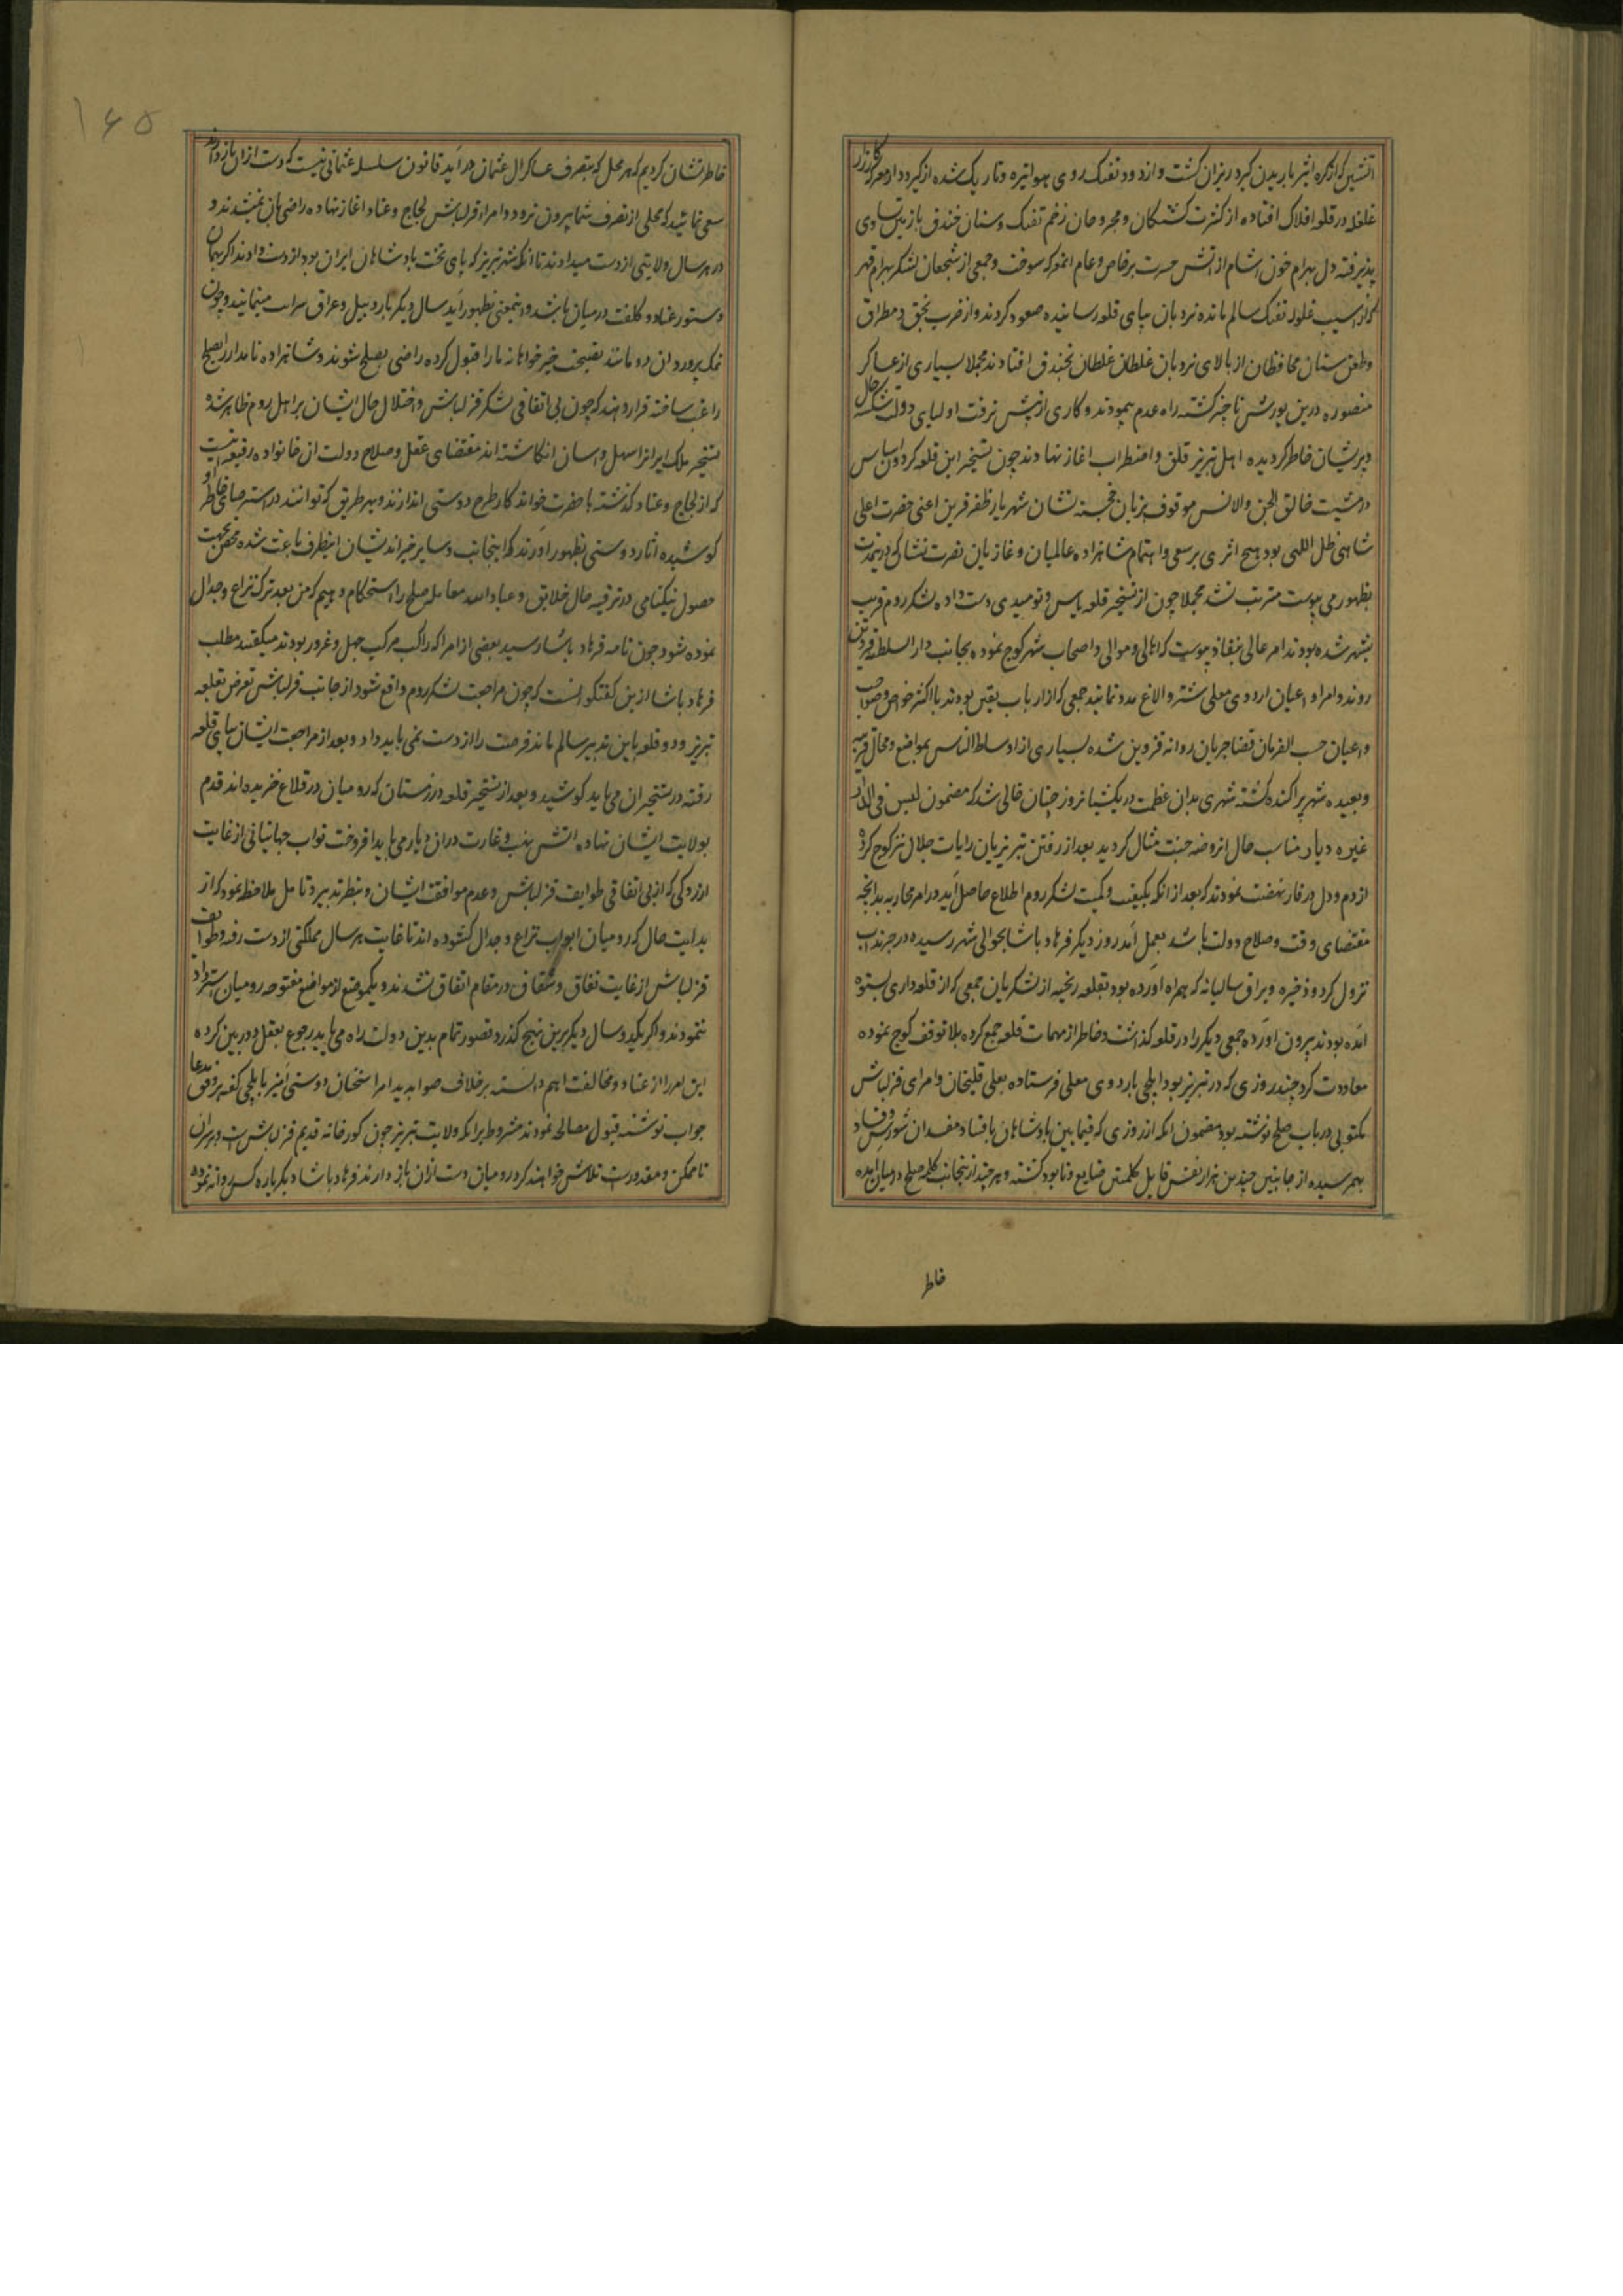 آتشین از کره اثیر باریدن کرد ریزان گشت و از دود تفنک روی هوا تیره و تاریک شده از گیر و دار معرکه کارزار
غلغله در قلعه افلاک افتاده از کثرت کشتکان و مجروحان زخم تفنک و سنان خندق با زمین تساوی
پذیرفته دل بهرام خون آشام از آتش حسرت بر خاص و عام آن معرکه سوخت و جمعی از شجعان لشکر بهرام قهر
که از آسیب غلوله تفنک سالم مانده نردبان بپای قلعه رسانیده صعود کردند و از ضرب تخق و مطراق
و طعن سنان محافظان از بالای نردبان غلطان غلطان بخندق افتادند مجملا بسیاری از عساکر
منصوره درین یورش ناچیز کشته راه عدم پیمودند و کاری از پیش نرفت اولیای دولت شکسته حال
و پریشان خاطر کردیده اهل تبریز قلق و اضطراب آغاز نهادند چون تسخیر این قلعه کردون اساس
در مشیت خالق الجن والانس موقوف بزبان خجسته نشان شهریار ظفر قرین اعنی حضرت اعلی
شاهی ظل اللهی بود هیچ اثری بر سعی و اهتمام شاهزاده عالمیان و غازیان نصرت نشان که در ینمدت
بظهور می پیوست مترتب نشد مجملا چون از تسخیر قلعه یاس و نومیدی دست داده لشکر روم قریب
بشهر شده بودند امر عالی بنفاذ پیوست که اهالی و موالی و اصحاب شهر کوچ نموده بجانب دار السلطنه قزوین
روند و امرا و اعیان اردوی معلی شتر و الاغ مدد نمایند جمعی که از ارباب یقین بودند با اکثر خواص و صواحب
و اعیان حسب الفرمان قضا جریان روانه قزوین شده بسیاری از اوساط الناس بمواضع و محال قریبه
و بعیده شهر پراکنده کشته شهری بدان عظمت در یکشبانروز چنان خالی شد که مضمون لیس فی الدار
غیره دیار مناسب حال آن روضه جنت مثال کردید بعد از رفتن تبریزیان رایات جلال نیز کوچ کرده
از دم و دل در فار نهضت نمودند که بعد از آنکه بکیفیت و کمیت لشکر روم اطلاع حاصل آید در امر محاربه بدانچه
مقتضای وقت و صلاح دولت باشد بعمل آمد روز دیکر فرهاد پاشا بحوالی شهر رسیده در چرنداب
نزول کرد و ذخیره و یراق سالیانه که همراه آورده بود بقلعه ریخته از لشکریان جمعی که از قلعه داری بستوه
آمده بودند بیرون آورده جمعی دیکر را در قلعه کذاشت و خاطر از مهمات قلعه جمع کرده بلا توقف کوچ نموده
معاودت کرد چند روزی که در تبریز بود ایلچی باردوی معلی فرستاده بعلی قلیخان و امرای قزلباش
مکتوبی در باب صلح نوشته بود مضمون آنکه از روزی که فیما بین پادشاهان بافساد مفسدان شورش و فساد
بهمرسیده از جانبین چندین هزار نفس قابل کلمتین ضایع و نابود کشته و هر چند از ینجانب کلمه صلح در میان آمده
خاطر
۱۶۵
خاطرنشان کردیم که هر محل که بتصرف عساکر آل عثمان در آید قانون سلسله عثمانی نیست که دست از آن باز دارند
سعی نمائید که محلی از تصرف شما بیرون نرود و امراء قزلباش لجاج و عناد آغاز نهاده راضی بآن نمیشدند و
در هر سال ولایتی از دست میدادند تا آنکه شهر تبریز که پای تخت پادشاهان ایران بود از دست دادند اگر بهمان
دستور عناد و کلفت در میان باشد و اینمعنی بظهور آید سال دیکر باردبیل و عراق سرایت مینمایند و چون
نمک پرورد آن دودمانند نصیحت خیرخواهانه ما را قبول کرده راضی بصلح شوند و شاهزاده نامدار را بصلح
راغب ساخته قرار دهند که چون بی اتفاقی لشکر قزلباش و اختلال حال ایشان بر اهل روم ظاهر شده
تسخیر ملک ایرانرا سهل و آسان انکاشته اند مقتضای عقل و صلاح دولت آن خانواده رفیعه نیست
که از لجاج و عناد کذشته با حضرت خواندکار طرح دوستی اندازند و بهر طریق که توانند در استرضای خاطر او
کوشیده آثار دوستی بظهور آورند که اینجانب و سایر خیراندیشان اینطرف باعث شده محض بجهت
حصول نیکنامی و در ترفیه حال خلایق و عبادالله معامله صلح را استحکام دهیم که من بعد ترک نزاع و جدال
نموده شود چون نامه فرهاد پاشا رسید بعضی از امرا که راکب مرکب جهل و غرور بودند میکفتند مطلب
فرهاد پاشا ازین کفتکو آنست که چون مراجعت لشکر روم واقع شود از جانب قزلباش تعرض بقلعه
تبریز رود و قلعه باین تدبیر سالم ماند فرصت را از دست نمی باید داد و بعد از مراجعت ایشان بپای قلعه
رفته در تسخیر آن می باید کوشید و بعد از تسخیر قلعه در زمستان که رومیان در قلاع خزیده اند قدم
بولایت ایشان نهاده آتش نهب و غارت در آن دیار می باید افروخت نواب جهانبانی از غایت
آزردگی که از بی اتفاقی طوایف قزلباش و عدم موافقت ایشان و بنظر تدبیر و تامل ملاحظه نمود که از
بدایت حال که رومیان ابواب نزاع و جدال کشوده اند تا غایت هر سال مملکتی از دست رفته و طوایف
قزلباش از غایت نفاق و شقاق در مقام اتفاق نشدند و یکموضع از مواضع مفتوحه رومیان استرداد
ننمودند و اکر یکدو سال دیکر برین نهج کذرد قصور تمام بدین دولت راه می یابد رجوع بعقل دوربین کرده
این امر را از عناد و مخالفت اهم دانسته بر خلاف صوابدید امرا سخنان دوستی آمیز بایلچی کفته بر وفق مدعا
جواب نوشته قبول مصالحه نمودند مشروط برانکه ولایت تبریز چون کورخانه قدیم قزلباش است و بر سر آن
تا ممکن و مقدورست تلاش خواهند کرد رومیان دست از آن باز دارند فرهاد پاشا دیکر باره کس روانه نموده